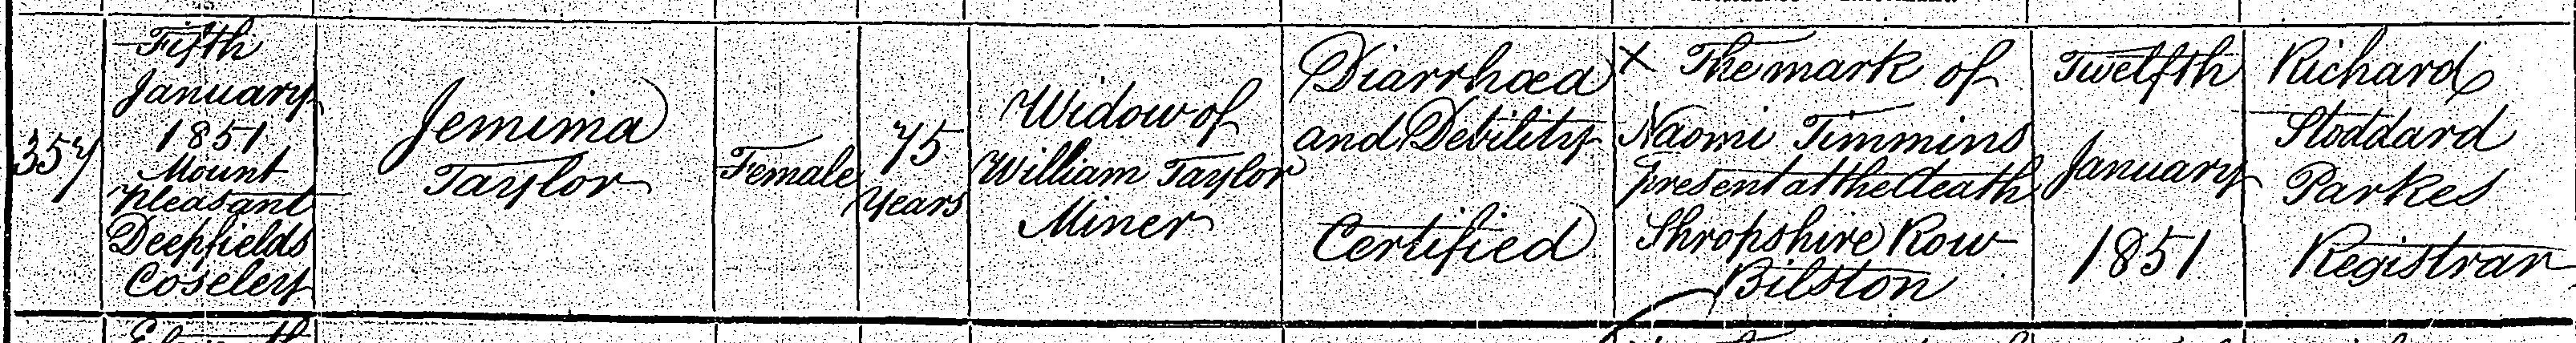 357
Fifth
January
1851
Mount
Pleasant
Deepfields
Coseley
Jemima
Taylor
Female
75
Years
Widow of
William Taylor
Miner
Diarrhœa
and Debility
Certified
X The mark of
Naomi Timmins
present at the death
Shropshire Row
Bilston
Twelfth
January
1851
Richard
Stoddard
Parkes
Registrar